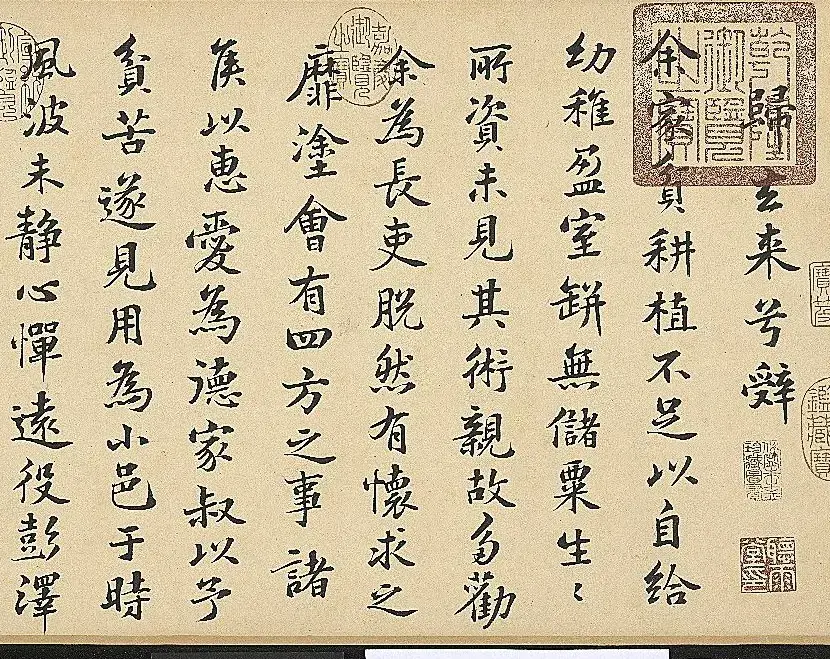 歸去来兮辤
余家貧耕植不足以自給
幼稚盈室缾無儲粟生〻
所資未見其術親故多勸
余為長吏脫然有懷求之
靡塗會有四方之事諸
侯以惠愛為德家叔以予
貧苦遂見用為小邑于時
風波未靜心憚遠役彭澤
乾隆御覽之寶
嘉慶御覽之寶